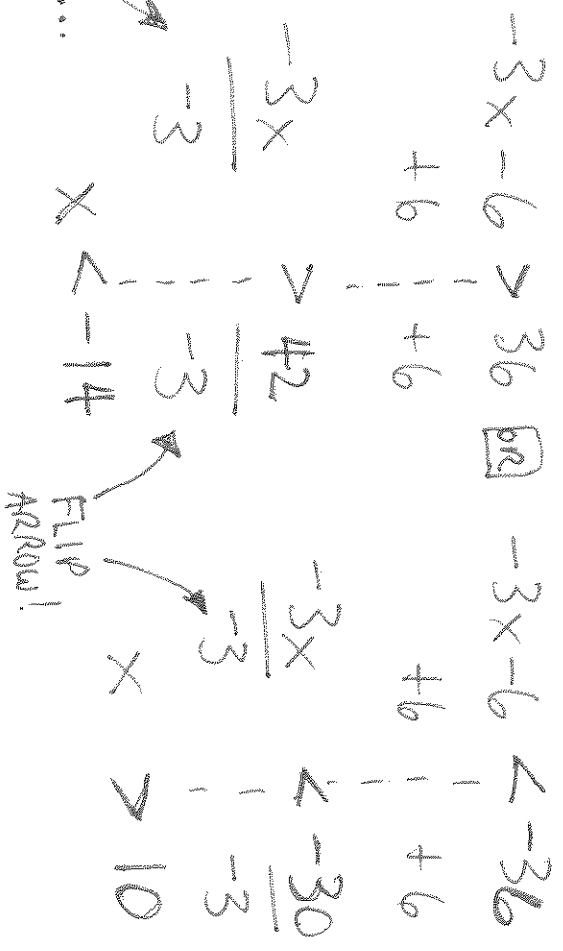 -3x - 6 > 36 OR -3x - 6 < -36
+6 +6 +6 +6
-3x > 42 -3x < -30
-3 -3 -3 -3
x < -14 x > 10
FLIP
ARROW!